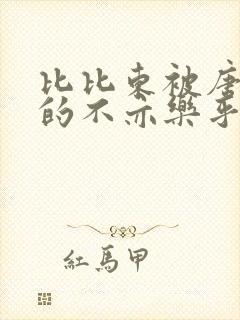 比比東被唐
的不亦樂乎
紅馬甲